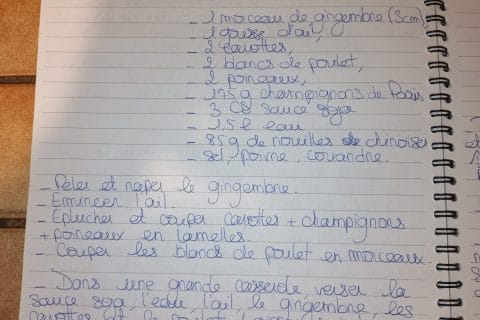 - 1 morceau de gingembre (3cm),
- 1 gousse d'ail,
- 2 carottes,
- 2 blancs de poulet,
- 2 poireaux,
- 175 g champignons de Paris
- 3 CS sauce soja
- 1.5 l eau
- 85 g de nouilles chinoises
- sel, poivre, coriandre.
- Peler et raper le gingembre.
- Emincer l'ail.
- Eplucher et couper carottes + champignons
+ poireaux en lamelles.
- Couper les blancs de poulet en morceaux
- Dans une grande casserole verser la
sauce soja, l'eau, l'ail le gingembre, les
carottes et le poulet